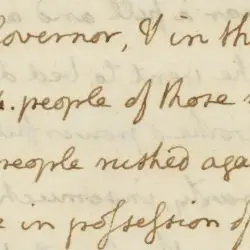 Governor, & in th
people of those
people rushed aga
in possession of